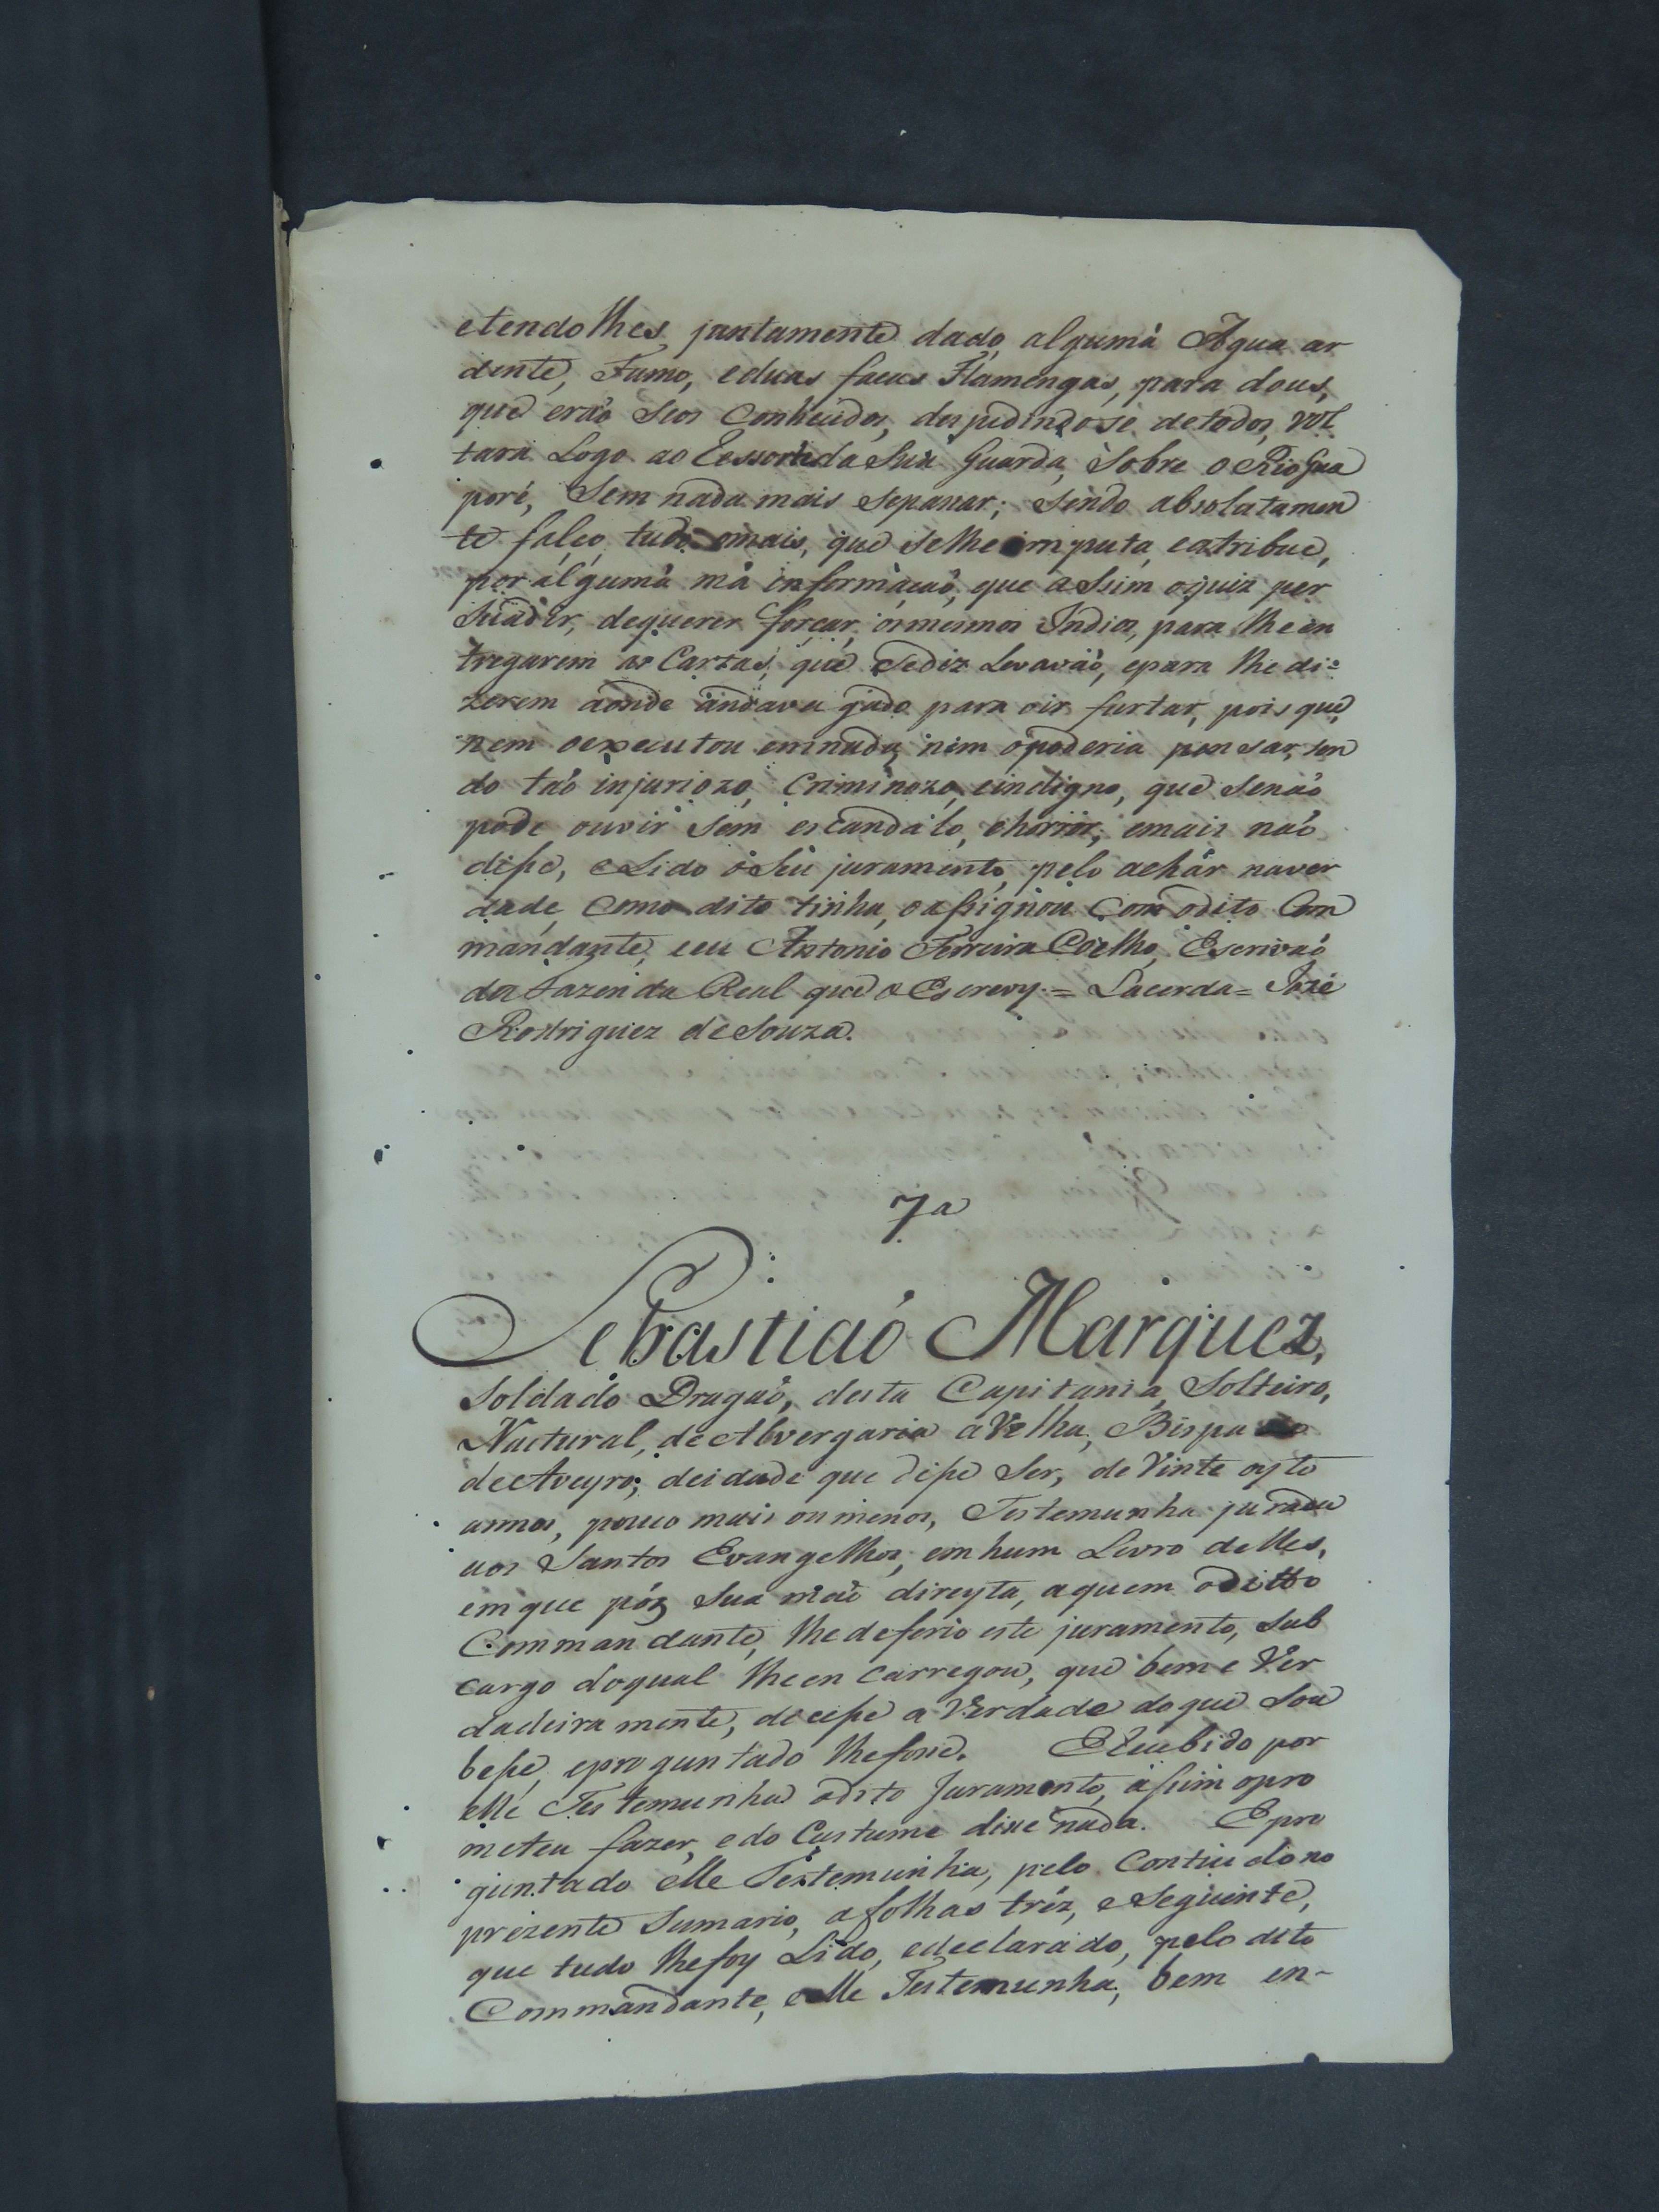 etendolhes, juntamente dado, algumà Agua ar
dente, Fumo, eduas facas Flamengas, para dous,
que eraõ Seos Conhecidos, despedindose detodos, vol
tara Logo ao da Suà Guarda, Sobre o Rio Gua
poré, Sem nada mais Sepasar; Sendo absolutamen
te falço, tudo omais, que Selhe imputa, eatribue,
por algumà mà informaçaõ, que assim oquiz per
Suadir, dequerer forçar, ormesmos Indios, para lheen
tregarem as Cartas, que Sediz Levavaõ, epara lhe di=
zerem aonde andava gado para oir furtar, pois que,
nem oexecutou emnada, nem opoderia pensar, Sen
do taõ injuriozo, Criminozo, eindigno, que Senaõ
pode ouvir Sem escandalo, ehorror; emais naõ
disse, eLido oSeu juramento, pelo achar naver
dade, Como dito tinha, oassignou Com odito Com
mandante, eeu Antonio Ferreira Coelho, Escrivaõ
da Fazenda Real que o Escrevy = Lacerda = Jozé
Rodriguez de Souza.
7a
Sebastiaõ Marquez,
Soldado Dragaõ, desta Capitania, Solteiro,
Nactural, de Alvergaria aVelha, Bispado
de Aveyro; deidade que disse Ser, de Vinte oyto
annos, pouco mais ou menos, Testemunha jurada
aos Santos Evangelhos, em hum Livro delles,
emque póz Sua maõ direyta, aquem oditto
Commandante, lhedeferio este juramento, Sub
cargo doqual lheen carregou, que bem e Ver
dadeira mente, dicesse a Verdade doque Sou
besse, epreguntado lhefosse. E recebido por
elle Testemunha odito Juramento, assim opro
meteu fazer, edo Custume disse nada. E pre
guntado elle Testemunha, pelo Contiudo no
prezente Sumario, afolhas tréz, e Seguinte,
que tudo lhefoy Lido, edeclarado, pelo dito
Commandante, eelle Testemunha, bem en-